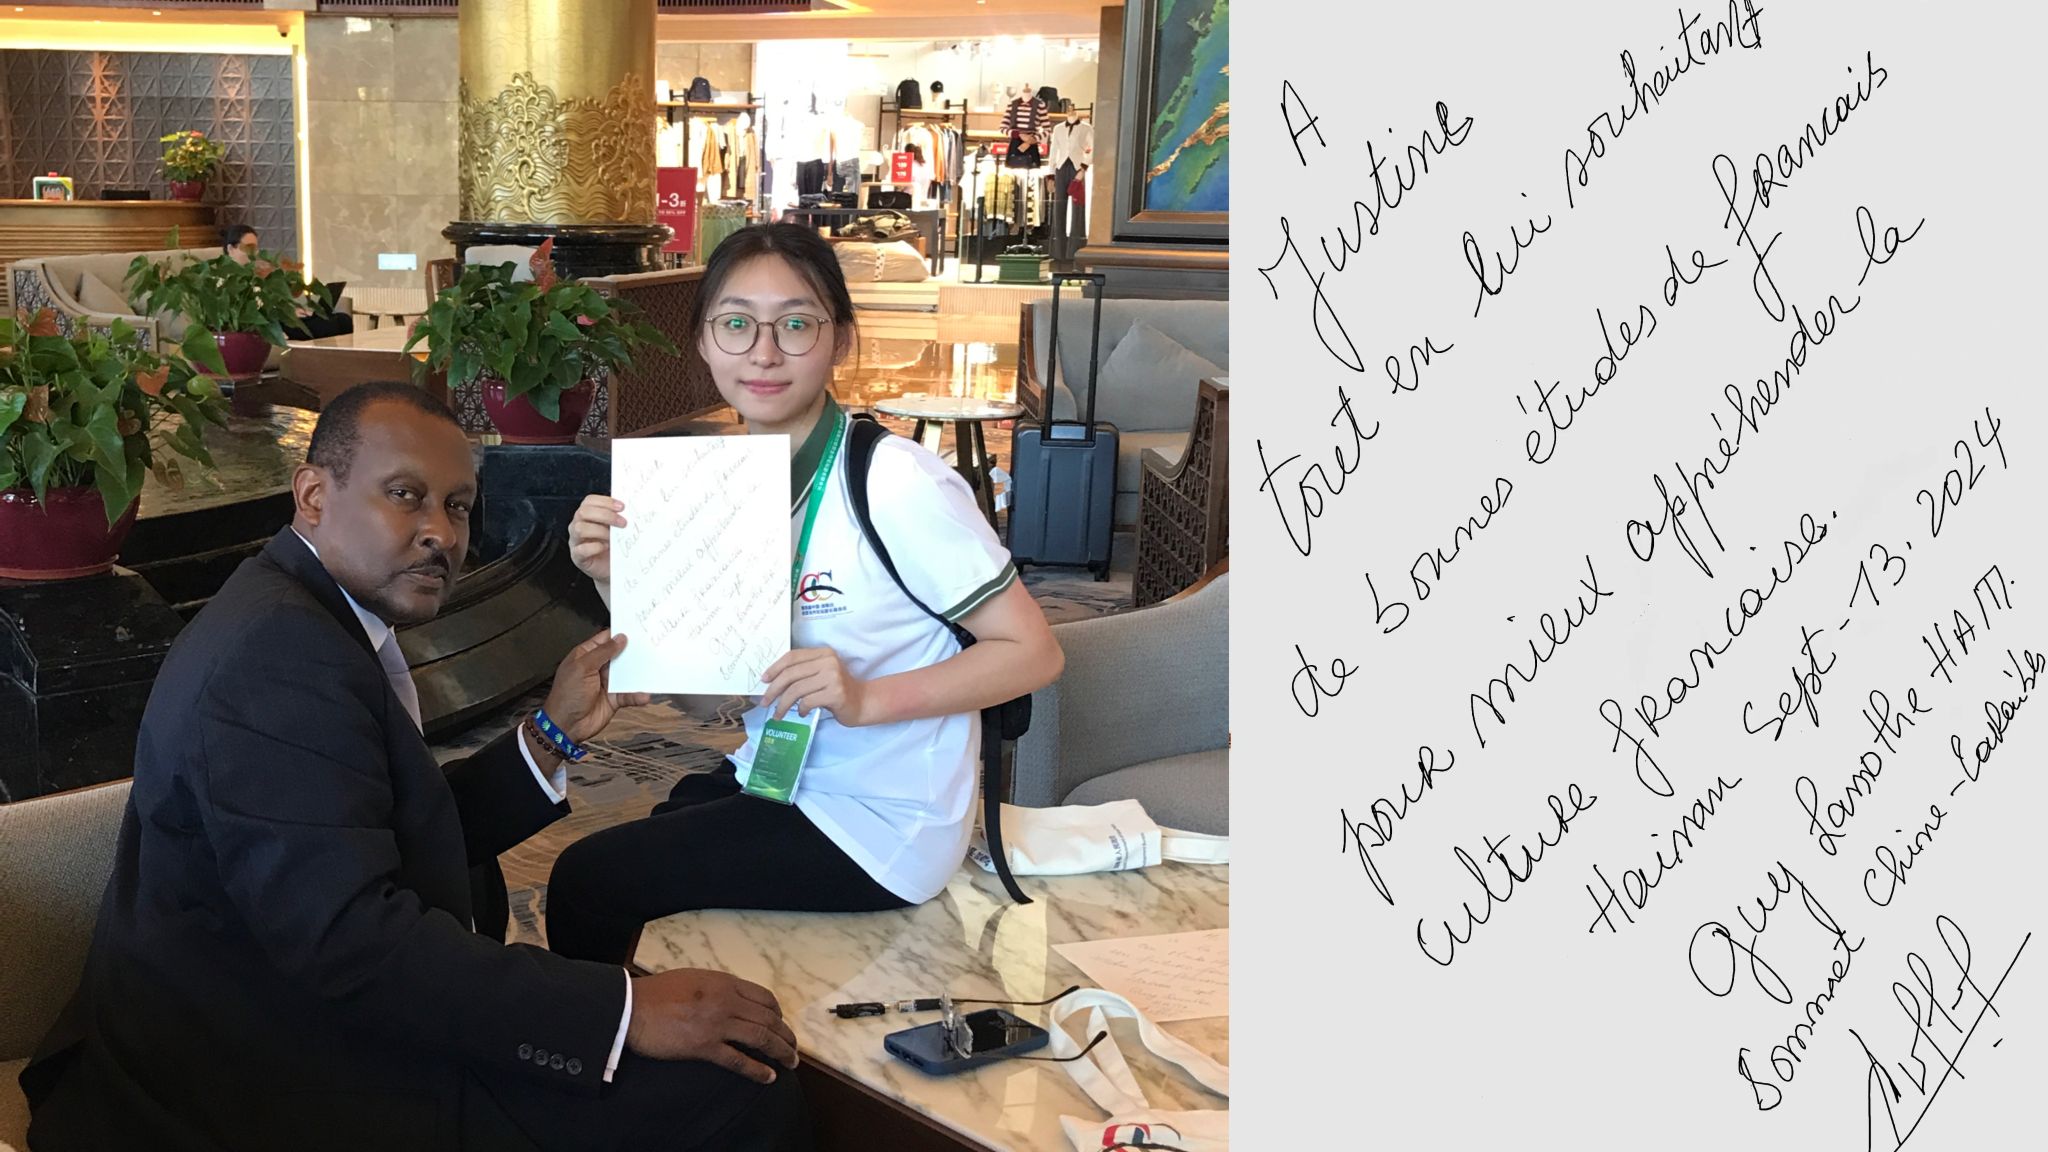 1-3折
VOLUNTEER
A
Justine
tout en lui souhaitant
de bonnes études de francais
pour mieux appréhender la
culture francaise.
Hainan Sept-13.2024
Guy Lamothe HAM.
Sommet Chine-Caraïbes